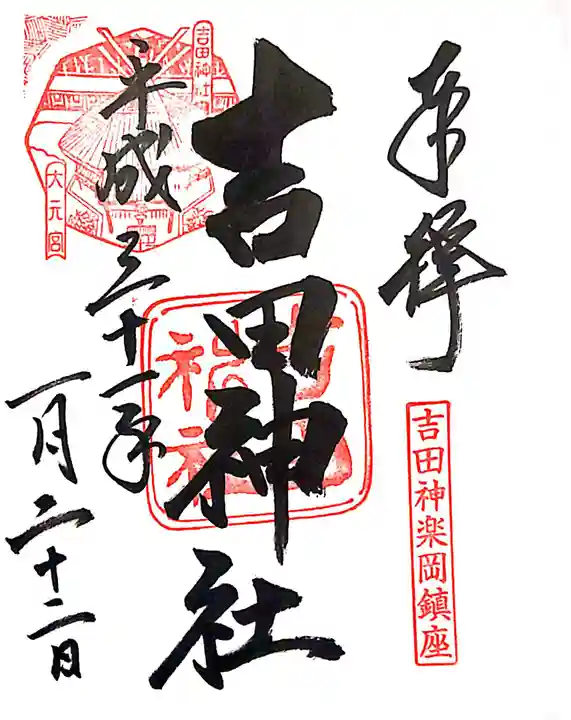 奉拝
吉田神楽岡鎮座
吉田神社
平成三十一年
一月二十二日
吉田神社
大元宮